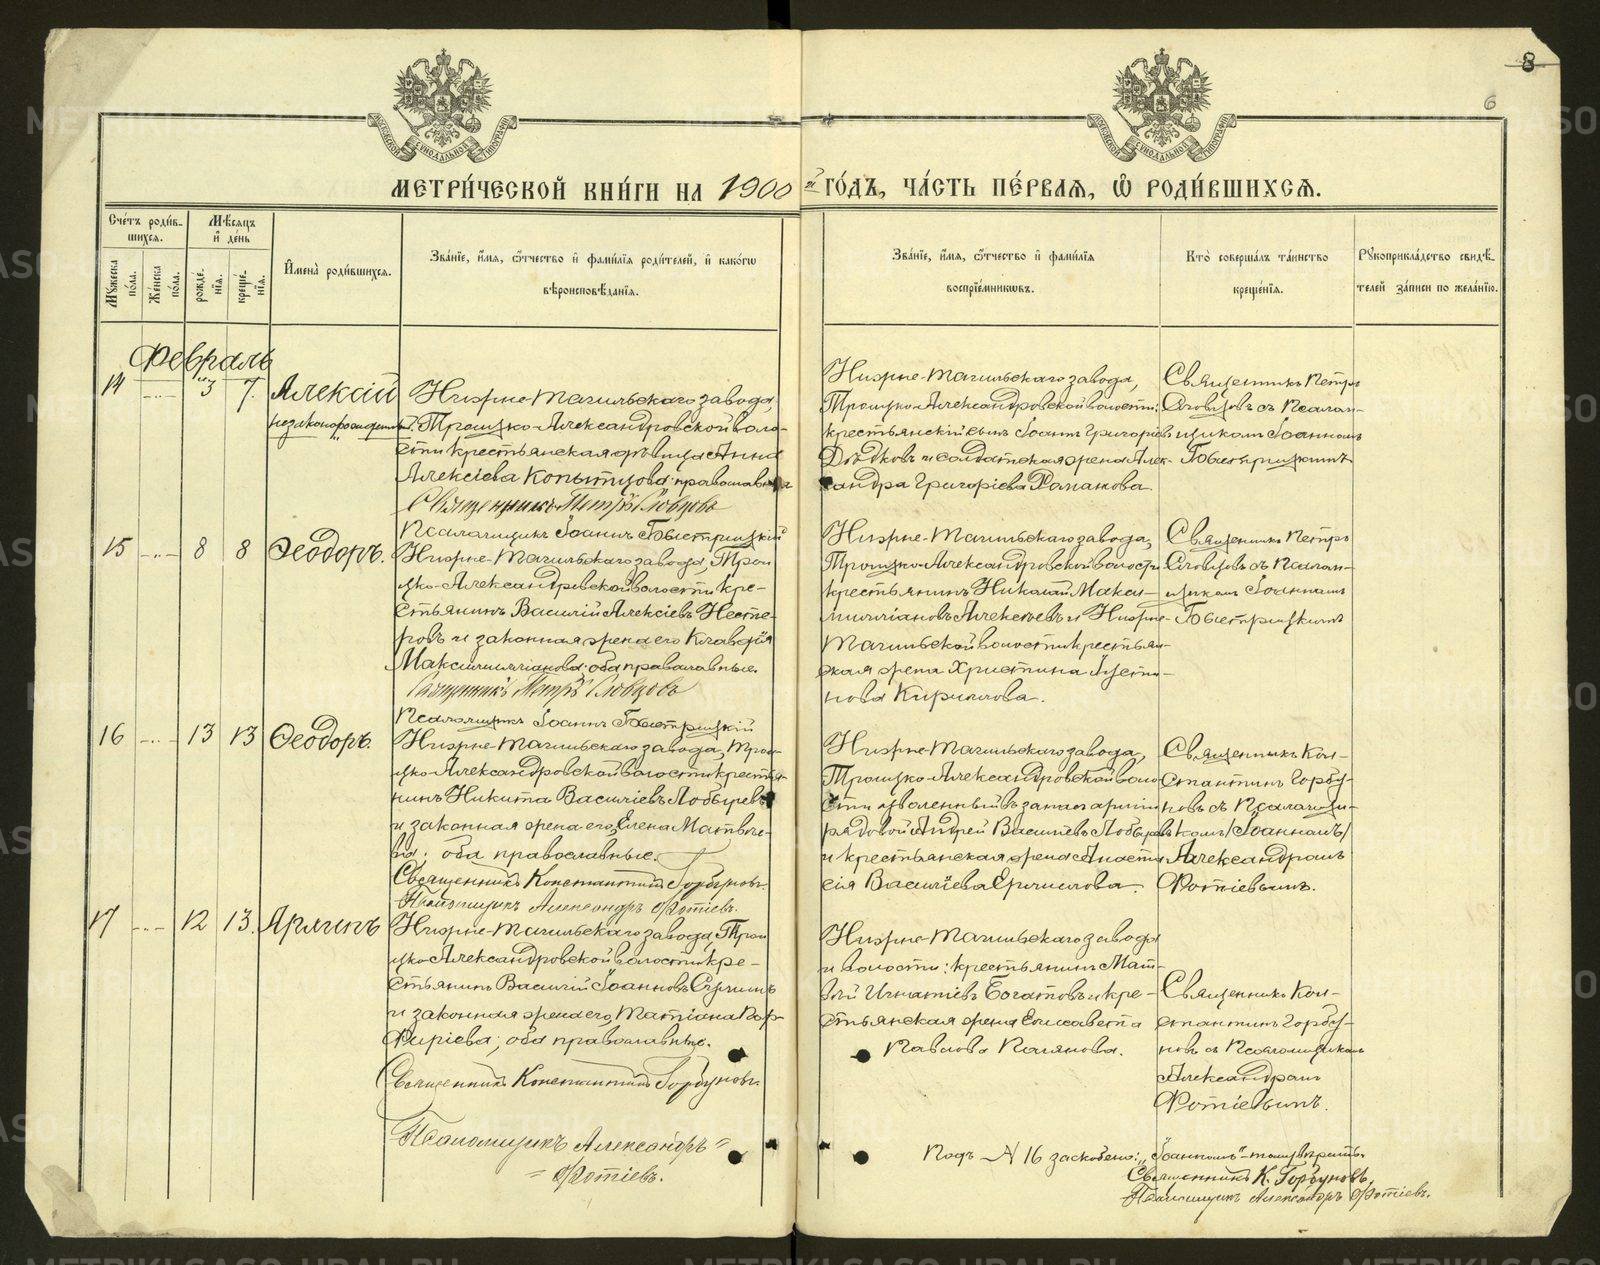 8
6
МОСКОВСКОЙ СѴНОДАЛЬНОЙ ТИПОГРАФІИ
МОСКОВСКОЙ СѴНОДАЛЬНОЙ ТИПОГРАФІИ
МЕТРИ́ЧЕСКОЙ КНИ́ГИ НА 1900 й ГО́ДЪ, ЧА́СТЬ ПЕ́РВАЯ, Ѽ РОДИ́ВШИХСЯ.
Сче́тъ роди́в-
шихся.
Мѣ́сяцъ
и҆ де́нь
Мꙋ́жеска по́ла.
Же́нска по́ла.
рожде́-
нїя.
креще́-
нїя.
И҆мена̀ роди́вшихся.
Зва́нїе, и҆́мя, ѻ҆́тчество и҆ фами́лїя роди́телей, и҆ како́гѡ
вѣроисповѣ́данїя.
Зва́нїе, и҆́мя, ѻ҆́тчество и҆ фами́лїя
воспрїе́мникѡвъ.
Кто̀ соверша́лъ та́инство
креще́нїя.
Рꙋкоприкла́дство свидѣ́-
телей за́писи по жела́нїю.
Февраль
14
3
7.
Алексій
незаконорожденный.
Нижне-Тагильскаго завода,
Троицко-Александровской воло-
сти крестьянская дѣвица Анна
Алексіева Копытова православная
Священникъ Петръ Словцовъ
Псаломщикъ Іоаннъ Быстрицкій
Нижне-Тагильскаго завода,
Троицко-Александровской волости:
крестьянскій сынъ Іоаннъ Григоріевъ
Дѣдковъ и солдатская жена Алек-
сандра Григоріева Романова.
Священникъ Петръ
Словцовъ съ Псалом-
щикомъ Іоанномъ
Быстрицкимъ
15
8
8
Ѳеодоръ.
Нижне-Тагильскаго завода, Трои
цко-Александровской волости кре-
стьянинъ Василій Алексіевъ Несте-
ровъ и законная жена его Клавдія
Максимилліанова: оба православные.
Священникъ Петръ Словцовъ
Псаломщикъ Іоаннъ Быстрицкій
Нижне-Тагильскаго завода,
Троицко-Александровской волости
крестьянинъ Николай Макси-
милліановъ Алексѣевъ и Нижне-
Тагильской волости крестьян-
ская жена Христина Іусти-
нова Кириллова.
Священникъ Петръ
Словцовъ съ Псалом-
щикомъ Іоанномъ
Быстрицкимъ
16
13
13
Ѳеодоръ.
Нижне-Тагильскаго завода, Трои-
цко-Александровской волости крестья-
нинъ Никита Василіевъ Лобыревъ
и законная жена его, Елена Матвіе-
ва; оба православные.
Священникъ Константинъ Горбуновъ.
Псаломщикъ Александръ Фотіевъ.
Нижне-Тагильскаго завода,
Троицко-Александровской воло
сти уволенный въ запас арміи
рядовой Андрей Василіевъ Лобыревъ
и крестьянская жена Анаста
сія Василіева Ермилова.
Священникъ Кон-
стантинъ Горбу-
новъ съ Псаломщи-
комъ (Іоанномъ)
Александромъ
Фотіевымъ.
17
12
13.
Арминъ
Нижне-Тагильскаго завода, Трои
цко Александровской волости кре-
стьянинъ Василій Іоанновъ
и законная жена его, Татіана Пор-
фиріева; оба православные.
Священникъ Константинъ Горбуновъ.
Псаломщикъ Александръ
Фотіевъ.
Нижне-Тагильскаго завода
и волости: крестьянинъ Мат-
ѳій Игнатіевъ Богатовъ и кре-
стьянская жена Елисавета
Павлова Полянова.
Священникъ Кон-
стантинъ Горбу-
новъ съ Псаломщикомъ
Александромъ
Фотіевымъ.
Подъ № 16 заскоблено: „Іоанномъ“ - тому вѣрить.
Священникъ К. Горбуновъ,
Псаломщикъ Александръ Фотіевъ.